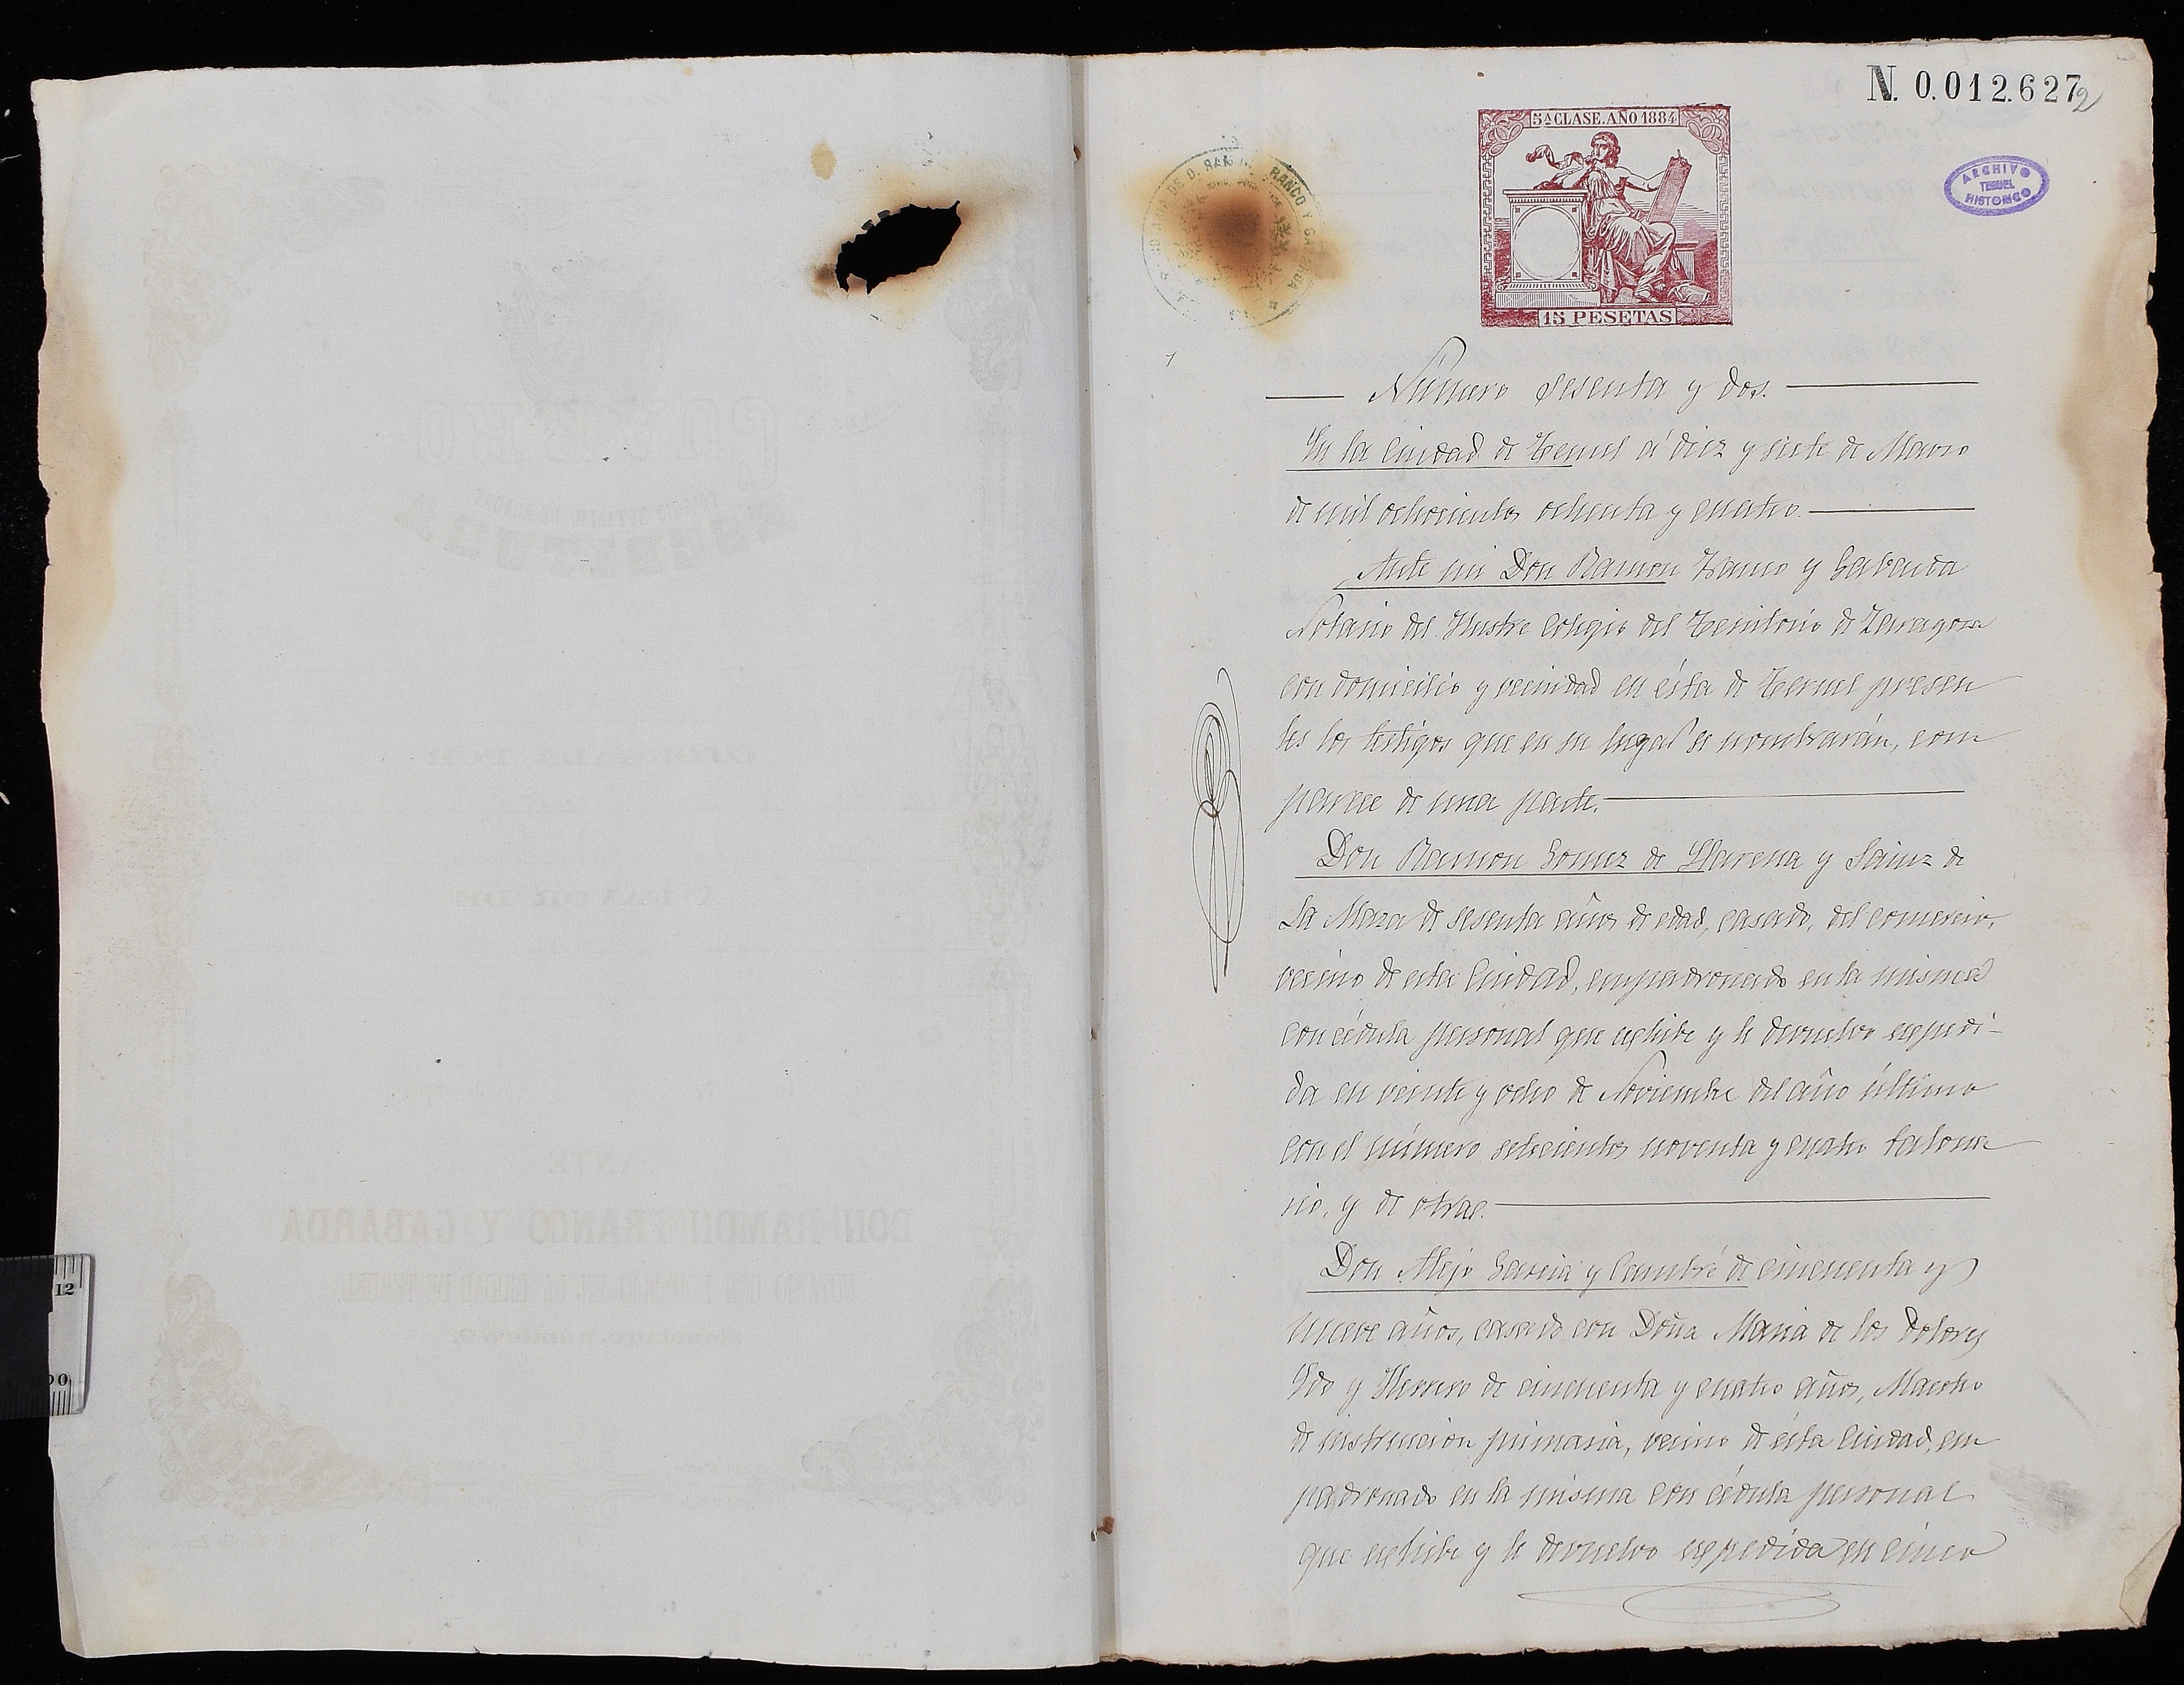 N. 0.012.627
2
5ª CLASE. AÑO 1884
ARCHIVO
TERUEL
HISTORICO
15 PESETAS
Número sesenta y dos.
En la Ciudad de Teruel á diez y siete de Marzo
de mil ochocientos ochenta y cuatro.
Ante mi Don Ramon Franco y Gabarda
Notario del Ilustre Colegio del Territorio de Zaragoza
con domicilio y vecindad en ésta de Teruel presen
tes los testigos que en su lugar se nombrarán, com
parece de una parte.
Don Ramon Gomez de Llarena y Sainz de
La Maza de sesenta años de edad, casado, del comercio,
vecino de esta Ciudad, empadronado en la misma
con cédula personal que exhibe y le devuelvo espedi-
da en veinte y ocho de Noviembre del año último
con el número setecientos noventa y cuatro talona
rio, y de otra.
Don Alejo Garcia y Cambré de cincuenta y
nueve años, casado con Doña Maria de los Dolores
y Herrero de cincuenta y cuatro años, Maestro
de instruccion primaria, vecino de ésta Ciudad, em
padronado en la misma con cédula personal
que exhibe y le devuelvo espedida en cinco
DON RAMON FRANCO Y GABARDA